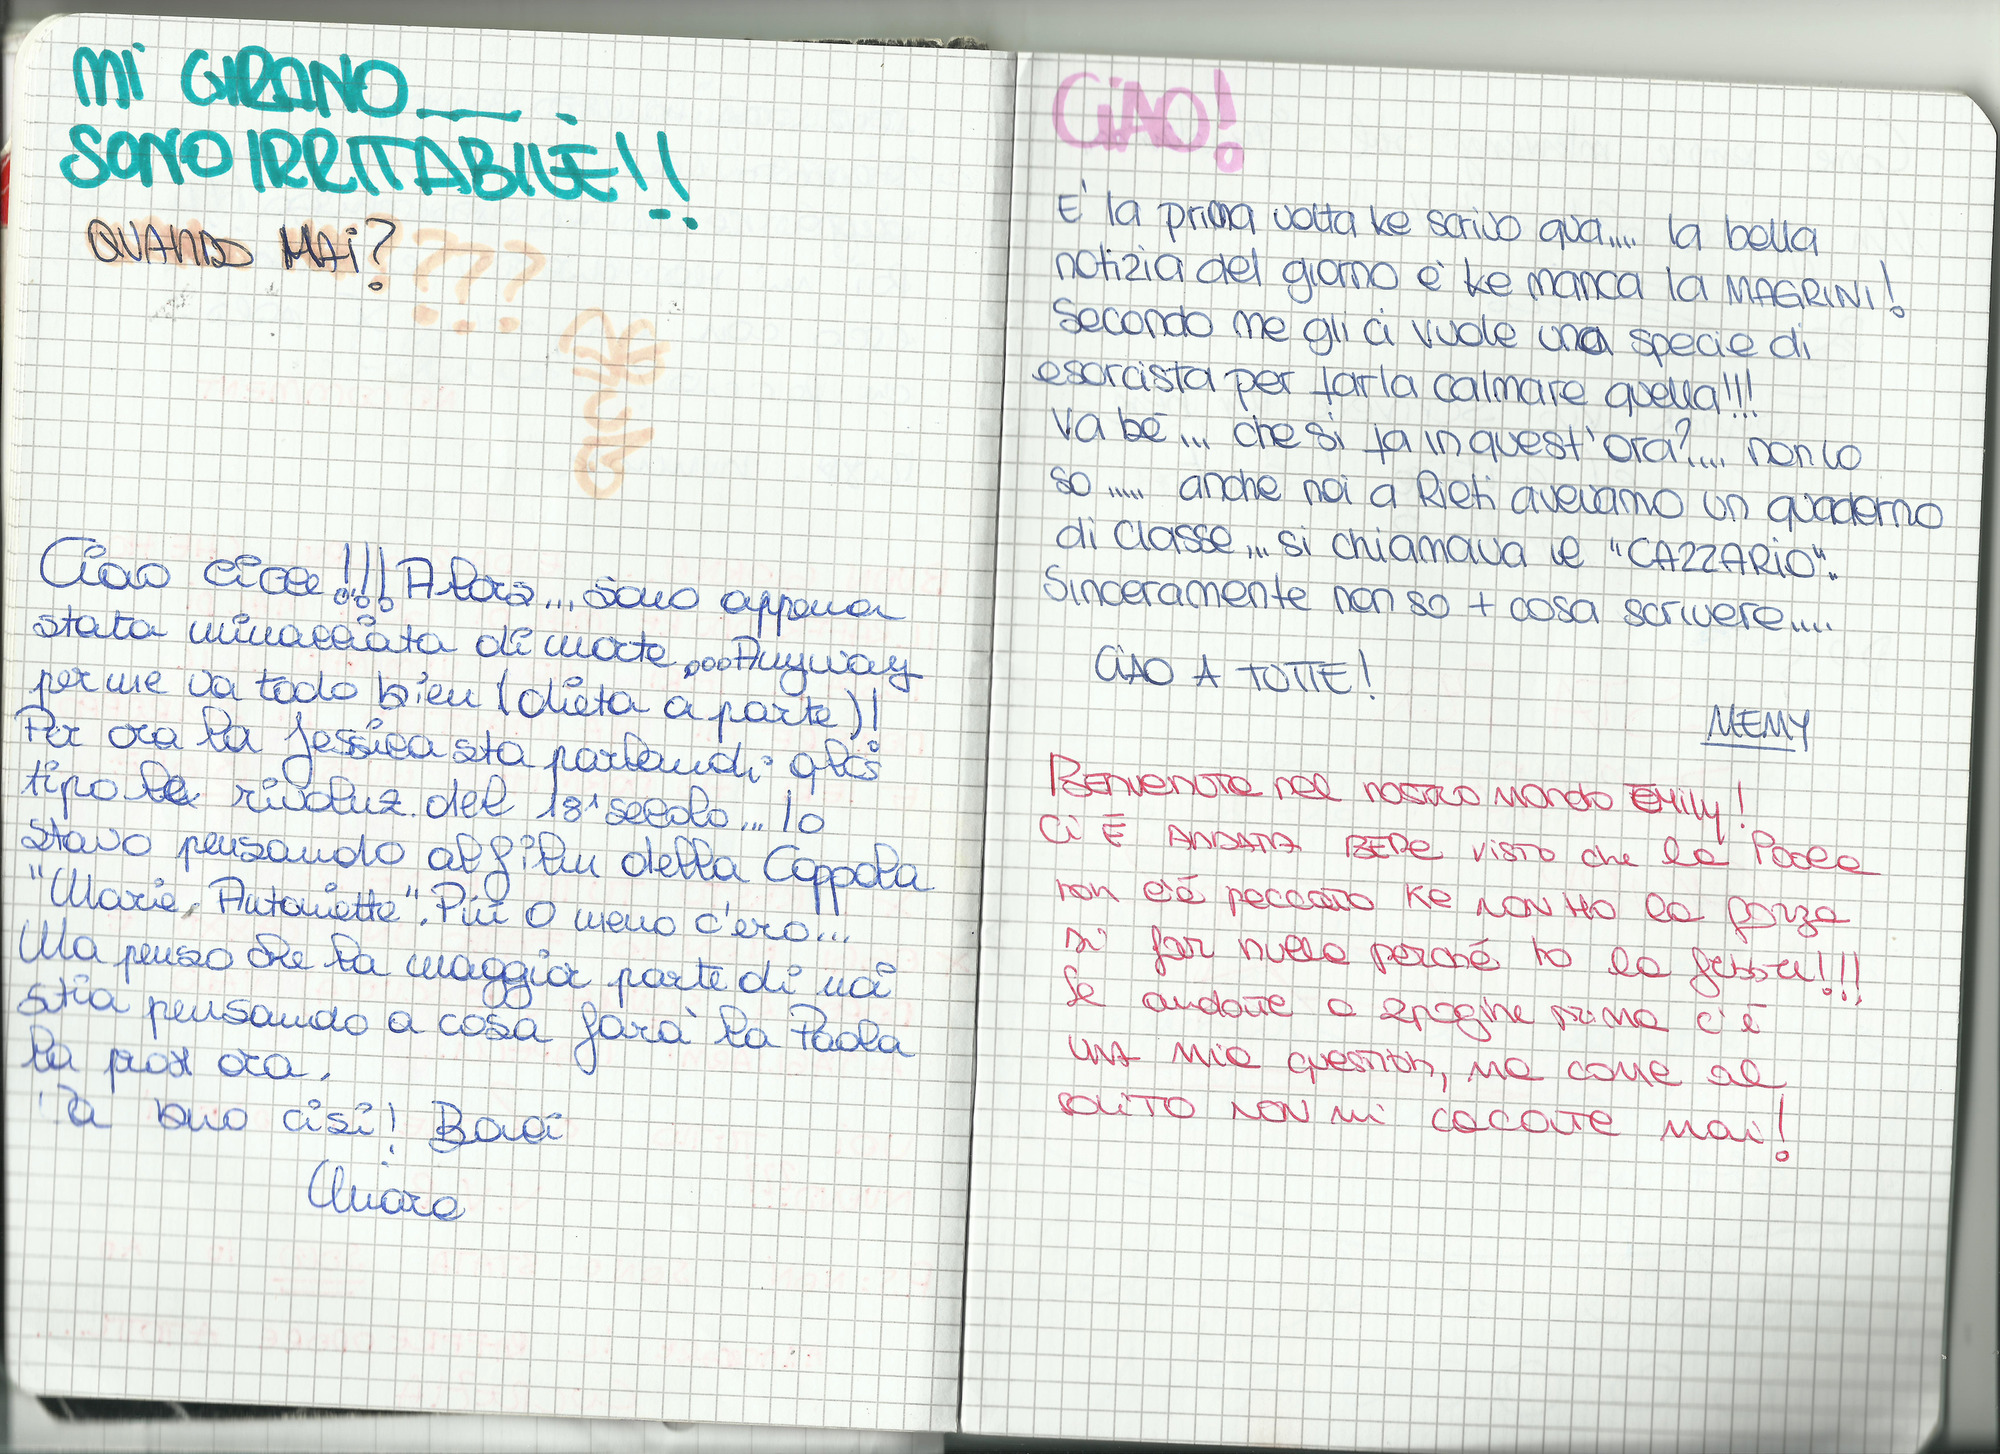 MI GIRANO___
SONO IRRITABILE!!
QUANDO MAI?
???
Ciao cicce!!! Allora... sono appena
stata minacciata di morte...Anyway
per me va todo bien (dieta a parte)!
Per ora la Jessica sta parlando di qlcs
tipo la rivoluz. del 18° secolo... Io
stavo pensando al film della Coppola
"Marie Antoniette". Più o meno c'ero...
Ma penso che la maggior parte di noi
stia pensando a cosa farà la Paola
la prox ora.
Baci
Chiara
CIAO!
E' la prima volta ke scrivo qua.... la bella
notizia del giorno è ke manca la MAGRINI!
Secondo me gli ci vuole una specie di
esorcista per farla calmare quella!!!
Va bé.... che si fa in quest'ora?.... non lo
so..... anche noi a Rieti avevamo un quaderno
di classe... si chiamava le "CAZZARIO".
Sinceramente non so + cosa scrivere.....
CIAO A TUTTE!
MEMY
BENVENUTA nel nostro mondo EMily!
Ci È ANDATA BENE visto che la Paola
non c'è peccato ke NON HO la forza
di far nulla perché ho la febbre!!!
Se andate 2 pagine prima c'è
UNA mia question, ma come al
SOLITO NON MI cacate mai!